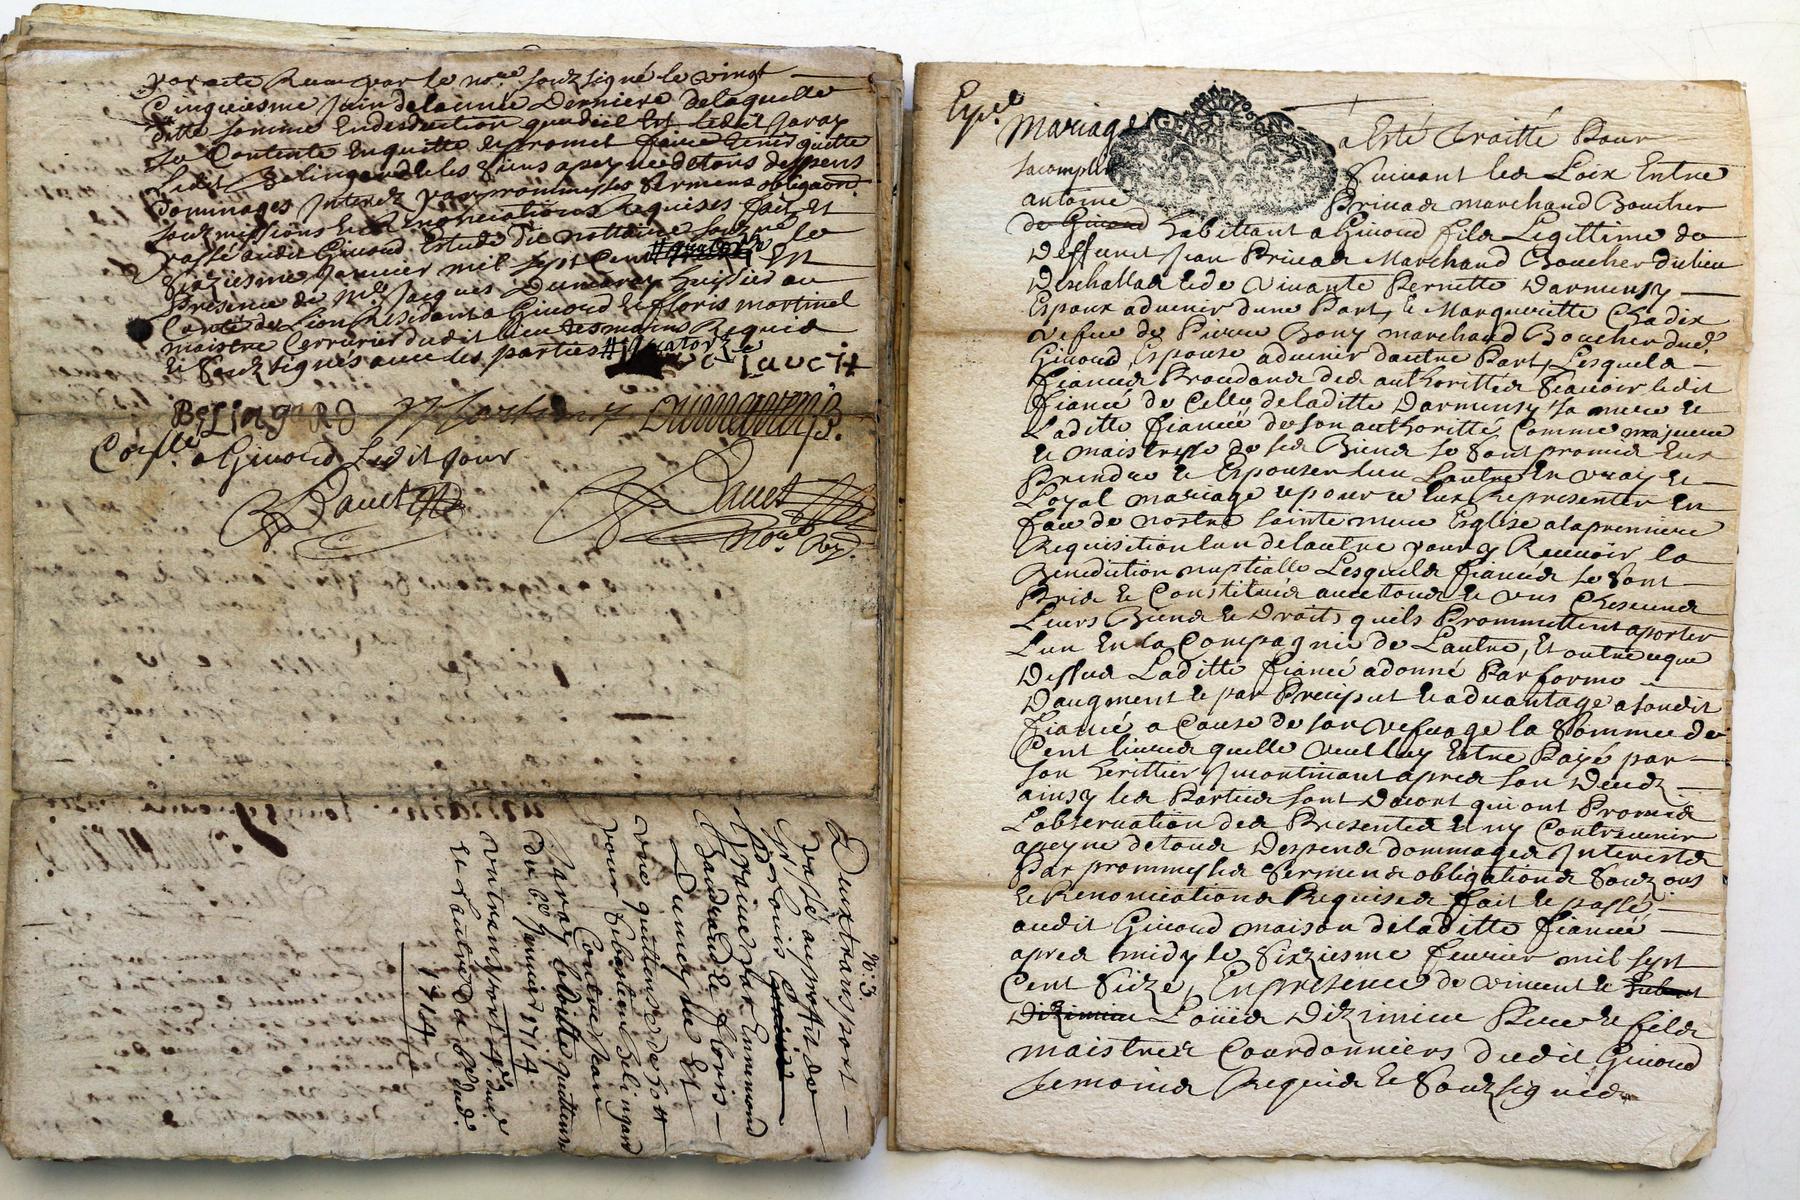 par acte Receu par le no.re souzsigné le vingt
Cinquiesme Juin de lannee Derniere de laquelle
ditte somme En desduction que dict Est Ledit Jaray
Se Contente En quitte Et promet faire tenir quitte
Ledit Belingard et les Siens a peyne de tous despens
Dommages Interez par prommesses Sermens obligaon.
souzmissions Et Renonciations Requises fait Et
passé audit Givord Estude du nottaire souzné le
Siziesme Janvier mil sept Cent quatorze En
Presence de m.e Jacques Dumarey huissier au
Comté de Lion Residant a Givord Et floris martinel
maistre Cerrurier dudit lieu tesmoins Requis
Et Souzsignés avec les parties quatorze
BELINGARD Dumarey
a Givord Ledit jour
Davet Davet
no.re Roy.
N.3.
Deux transport
passé au proffit de
Sr Louis
Par Emmond
Et floris
Dumarey Et
une quittance de
pour Sebastien Belingard
Contre Jean
Jaray laditte quittance
du 6.e Janvier 1714
un transport dud.
Et lautre du 6.e dud.
1714
Exp.é
Mariage a Esté Traitté Pour
sacomplir Suivant les Loix Entre
antoine Privas marchand Boucher
de Givord habittant a Givord fils Legittime de
Deffunt Jean Privas Marchand Boucher du lieu
Deschallas Et de Vivante Pernette Darmensy
Espoux advenir dune Part, Et Margueritte Chadix
Vefve de Pierre Bony marchand Boucher dud.
Givord, Espouse advenir dautre Part, Lesquels
fiancés Procedans des authorittés Scavoir Ledit
fiancé de Celle de laditte Darmensy sa mere Et
Laditte fiancée de son authoritté Comme majeure
Et maistresse de ses Biens se sont promis Eux
Prendre Et Espouser lun Lautre En vray Et
Loyal mariage Et pour ce Eux Representer En
face de nostre sainte mere Esglise a la premiere
Requisition lun de lautre pour y Recevoir la
Benediction nuptialle Lesquels fiancés se sont
Pris Et Constitués avec tous Et uns Chescuns
Leurs Biens Et Droits quils Prommettent aporter
Lun En la Compagnie de Lautre, Et outre ce que
Dessus Laditte fiancé a donné Par forme
Daugment Et par Preciput Et advantage a sondit
fiancé a Cause de son vefvage la Somme de
Cent livres quelle veut luy Estre Payé par
son herittier Incontinant apres son Decez
ainsy les Parties sont dacort qui ont Promis
Lobservation des Presentes Et ny Contrevenir
a peyne de tous Despens dommages Interests
Par prommesses Sermens obligations Souz ons
Et Renonciations Requises fait Et passé
audit Givord maison de laditte fiancée
apres midy le Siziesme fevrier mil sept
Cent Sieze, En presence de vincent Et
Louis Dizimieu Pere Et fils
maistres Courdonniers dudit Givord
temoins Requis Et Souzsignés